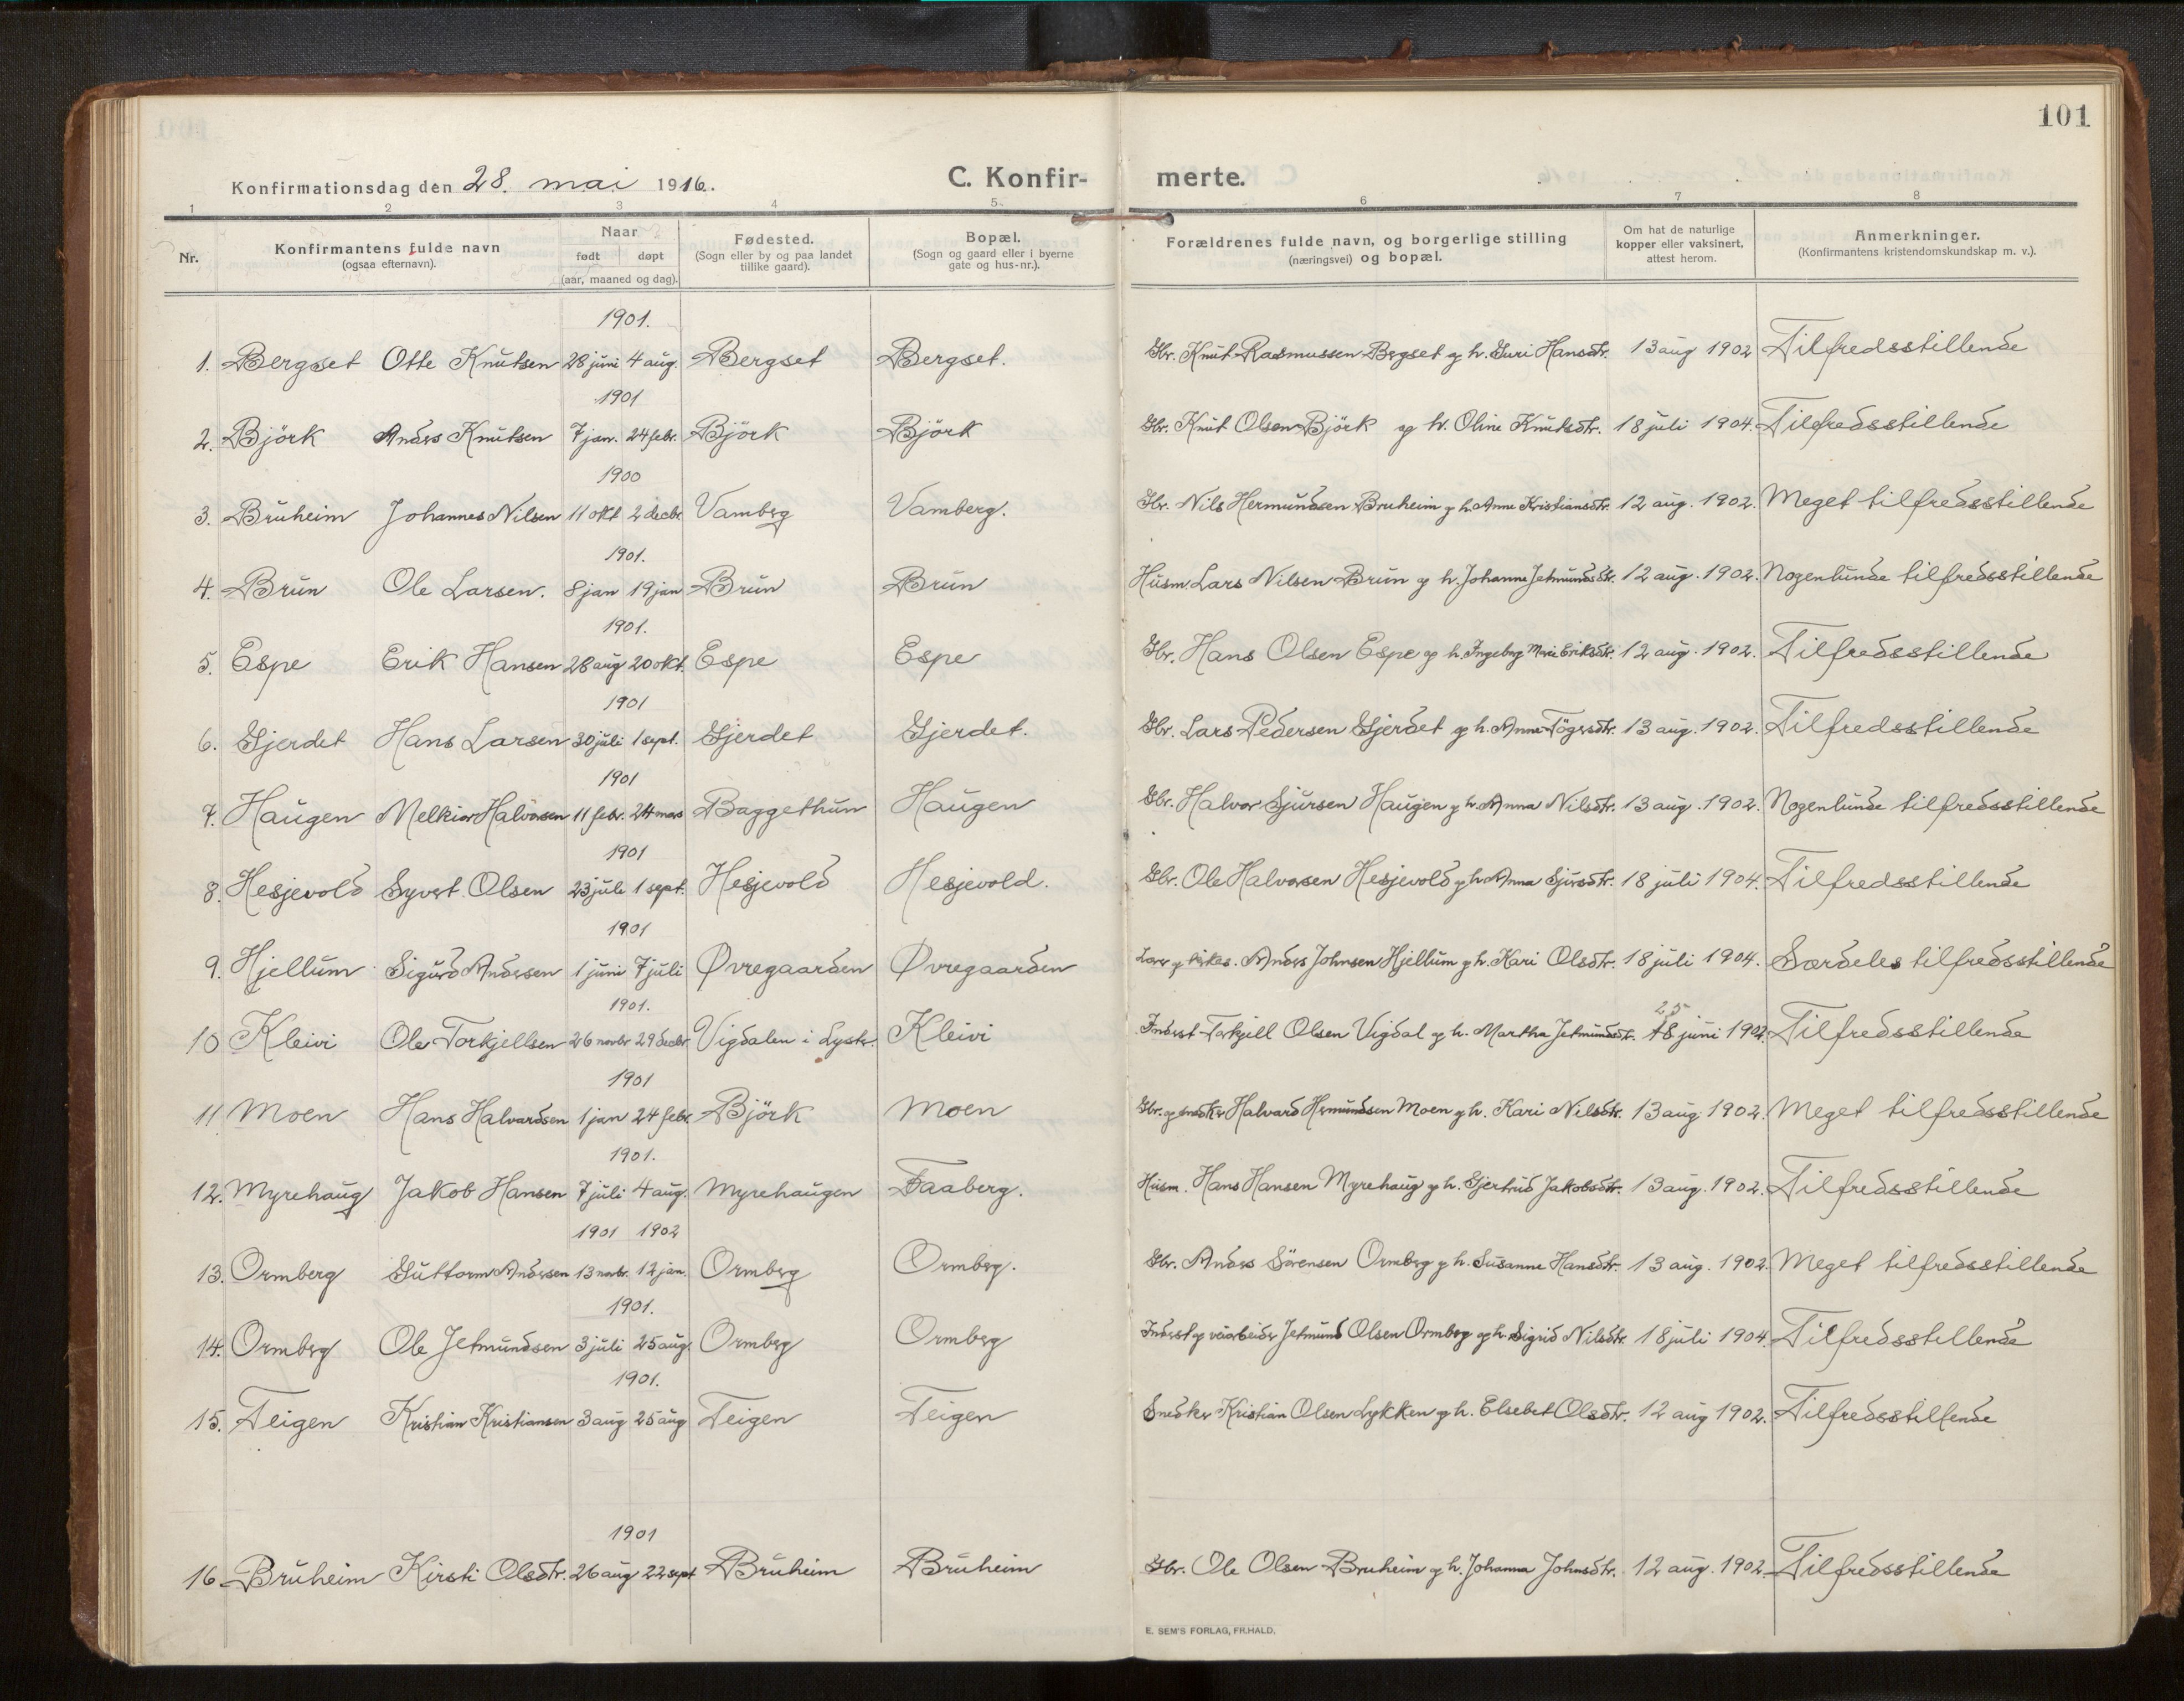 101
Konfirmationsdag den 28. mai 1916.
C. Konfir- merte.
1 2 3 4 5. 6 7 8
Nr.
Konfirmantens fulde navn
(ogsaa efternavn).
Naar
født døpt
(aar, maaned og dag).
Fødested.
(Sogn eller by og paa landet
tillike gaard).
Bopæl.
(Sogn og gaard eller i byerne
gate og hus-nr.).
Forældrenes fulde navn, og borgerlige stilling
(næringsvei) og bopæl.
Om hat de naturlige
kopper eller vaksinert,
attest herom.
Anmerkninger.
(Konfirmantens kristendomskundskap m. v.).
1901.
1. Bergset Otte Knutsen 28 juni 4 aug. Bergset Bergset. Gbr. Knut Rasmussen Bergset og h. Guri Hansdtr. 13 aug 1902 Tilfredsstillende
1901
2. Björk Anders Knutsen 7 jan. 24 febr. Björk Björk Gbr. Knut Olsen Björk og h. Oline Knutsdtr. 18 juli 1904. Tilfredsstillende
1900
3. Bruheim Johannes Nilsen 11 okt 2 decbr. Vamberg Vamberg. Gbr. Nils Hermundsen Bruheim og h. Anne Kristiansdtr. 12 aug. 1902. Meget tilfredsstillende
1901.
4. Brun Ole Larsen. 8 jan 19 jan Brun Brun Husm. Lars Nilsen Brun og h. Johanne Jetmundsdtr. 12 aug. 1902. Nogenlunde tilfredsstillende
1901.
5. Espe Erik Hansen 28 aug 20 okt. Espe Espe Gbr. Hans Olsen Espe og h. Ingeborg Marie Eriksdtr. 12 aug. 1902. Tilfredsstillende
1901
6. Gjerdet Hans Larsen 30 juli 1 sept. Gjerdet Gjerdet. Gbr. Lars Pedersen Gjerdet og h. Anne Tögersdtr. 13 aug. 1902. Tilfredsstillende
1901
7. Haugen Melkior Halvorsen 11 febr. 24 mars Baggethun Haugen Gbr. Halvor Sjursen Haugen og h. Anna Nilsdtr. 13 aug. 1902. Nogenlunde tilfredsstillende
1901
8. Hesjevold Syvert Olsen 23 juli 1 sept. Hesjevold Hesjevold. Gbr. Ole Halvorsen Hesjevold og h. Anna Sjursdtr. 18 juli 1904. Tilfredsstillende
1901
9. Hjellum Sigurd Andersen 1 juni 7 juli Øvregaarden Øvregaarden Lærer og kirkes. Anders Johnsen Hjellum og h. Kari Olsdtr. 18 juli 1904. Særdeles tilfredsstillende
1901. 25
10 Kleivi Ole Torkjellsen 26 novbr 29 decbr. Vigdalen i Lyster. Kleivi Inderst Torkjell Olsen Vigdal og h. Martha Jetmundsdtr. 18 juni 1902. Tilfredsstillende
1901
11 Moen Hans Halvardsen 1 jan 24 febr. Björk Moen Gbr. og snedker Halvard Hermundsen Moen og h. Kari Nilsdtr. 13 aug. 1902. Meget tilfredsstillende
1901.
12. Myrehaug Jakob Hansen 7 juli 4 aug. Myrehaugen Faaberg. Husm. Hans Hansen Myrehaug og h. Gjertrud Jakobsdtr. 13 aug. 1902. Tilfredsstillende
1901 1902
13. Ormberg Guttorm Andersen 13 novbr. 12 jan. Ormberg Ormberg. Gbr. Anders Sörensen Ormberg og h. Susanne Hansdtr. 13 aug. 1902. Meget tilfredsstillende
1901.
14. Ormberg Ole Jetmundsen 3 juli 25 aug. Ormberg Ormberg Inderst og veiarbeider Jetmund Olsen Ormberg og h. Sigrid Nilsdtr. 18 juli 1904. Tilfredsstillende
1901.
15. Teigen Kristian Kristiansen 3 aug 25 aug Teigen Teigen Snedker Kristian Olsen Lykken og h. Elsebet Olsdtr. 12 aug 1902. Tilfredsstillende
1901
16. Bruheim Kirsti Olsdtr. 26 aug 22 sept Bruheim Bruheim Gbr. Ole Olsen Bruheim og h. Johanna Johnsdtr. 12 aug. 1902. Tilfredsstillende
E. SEM'S FORLAG, FR.HALD.